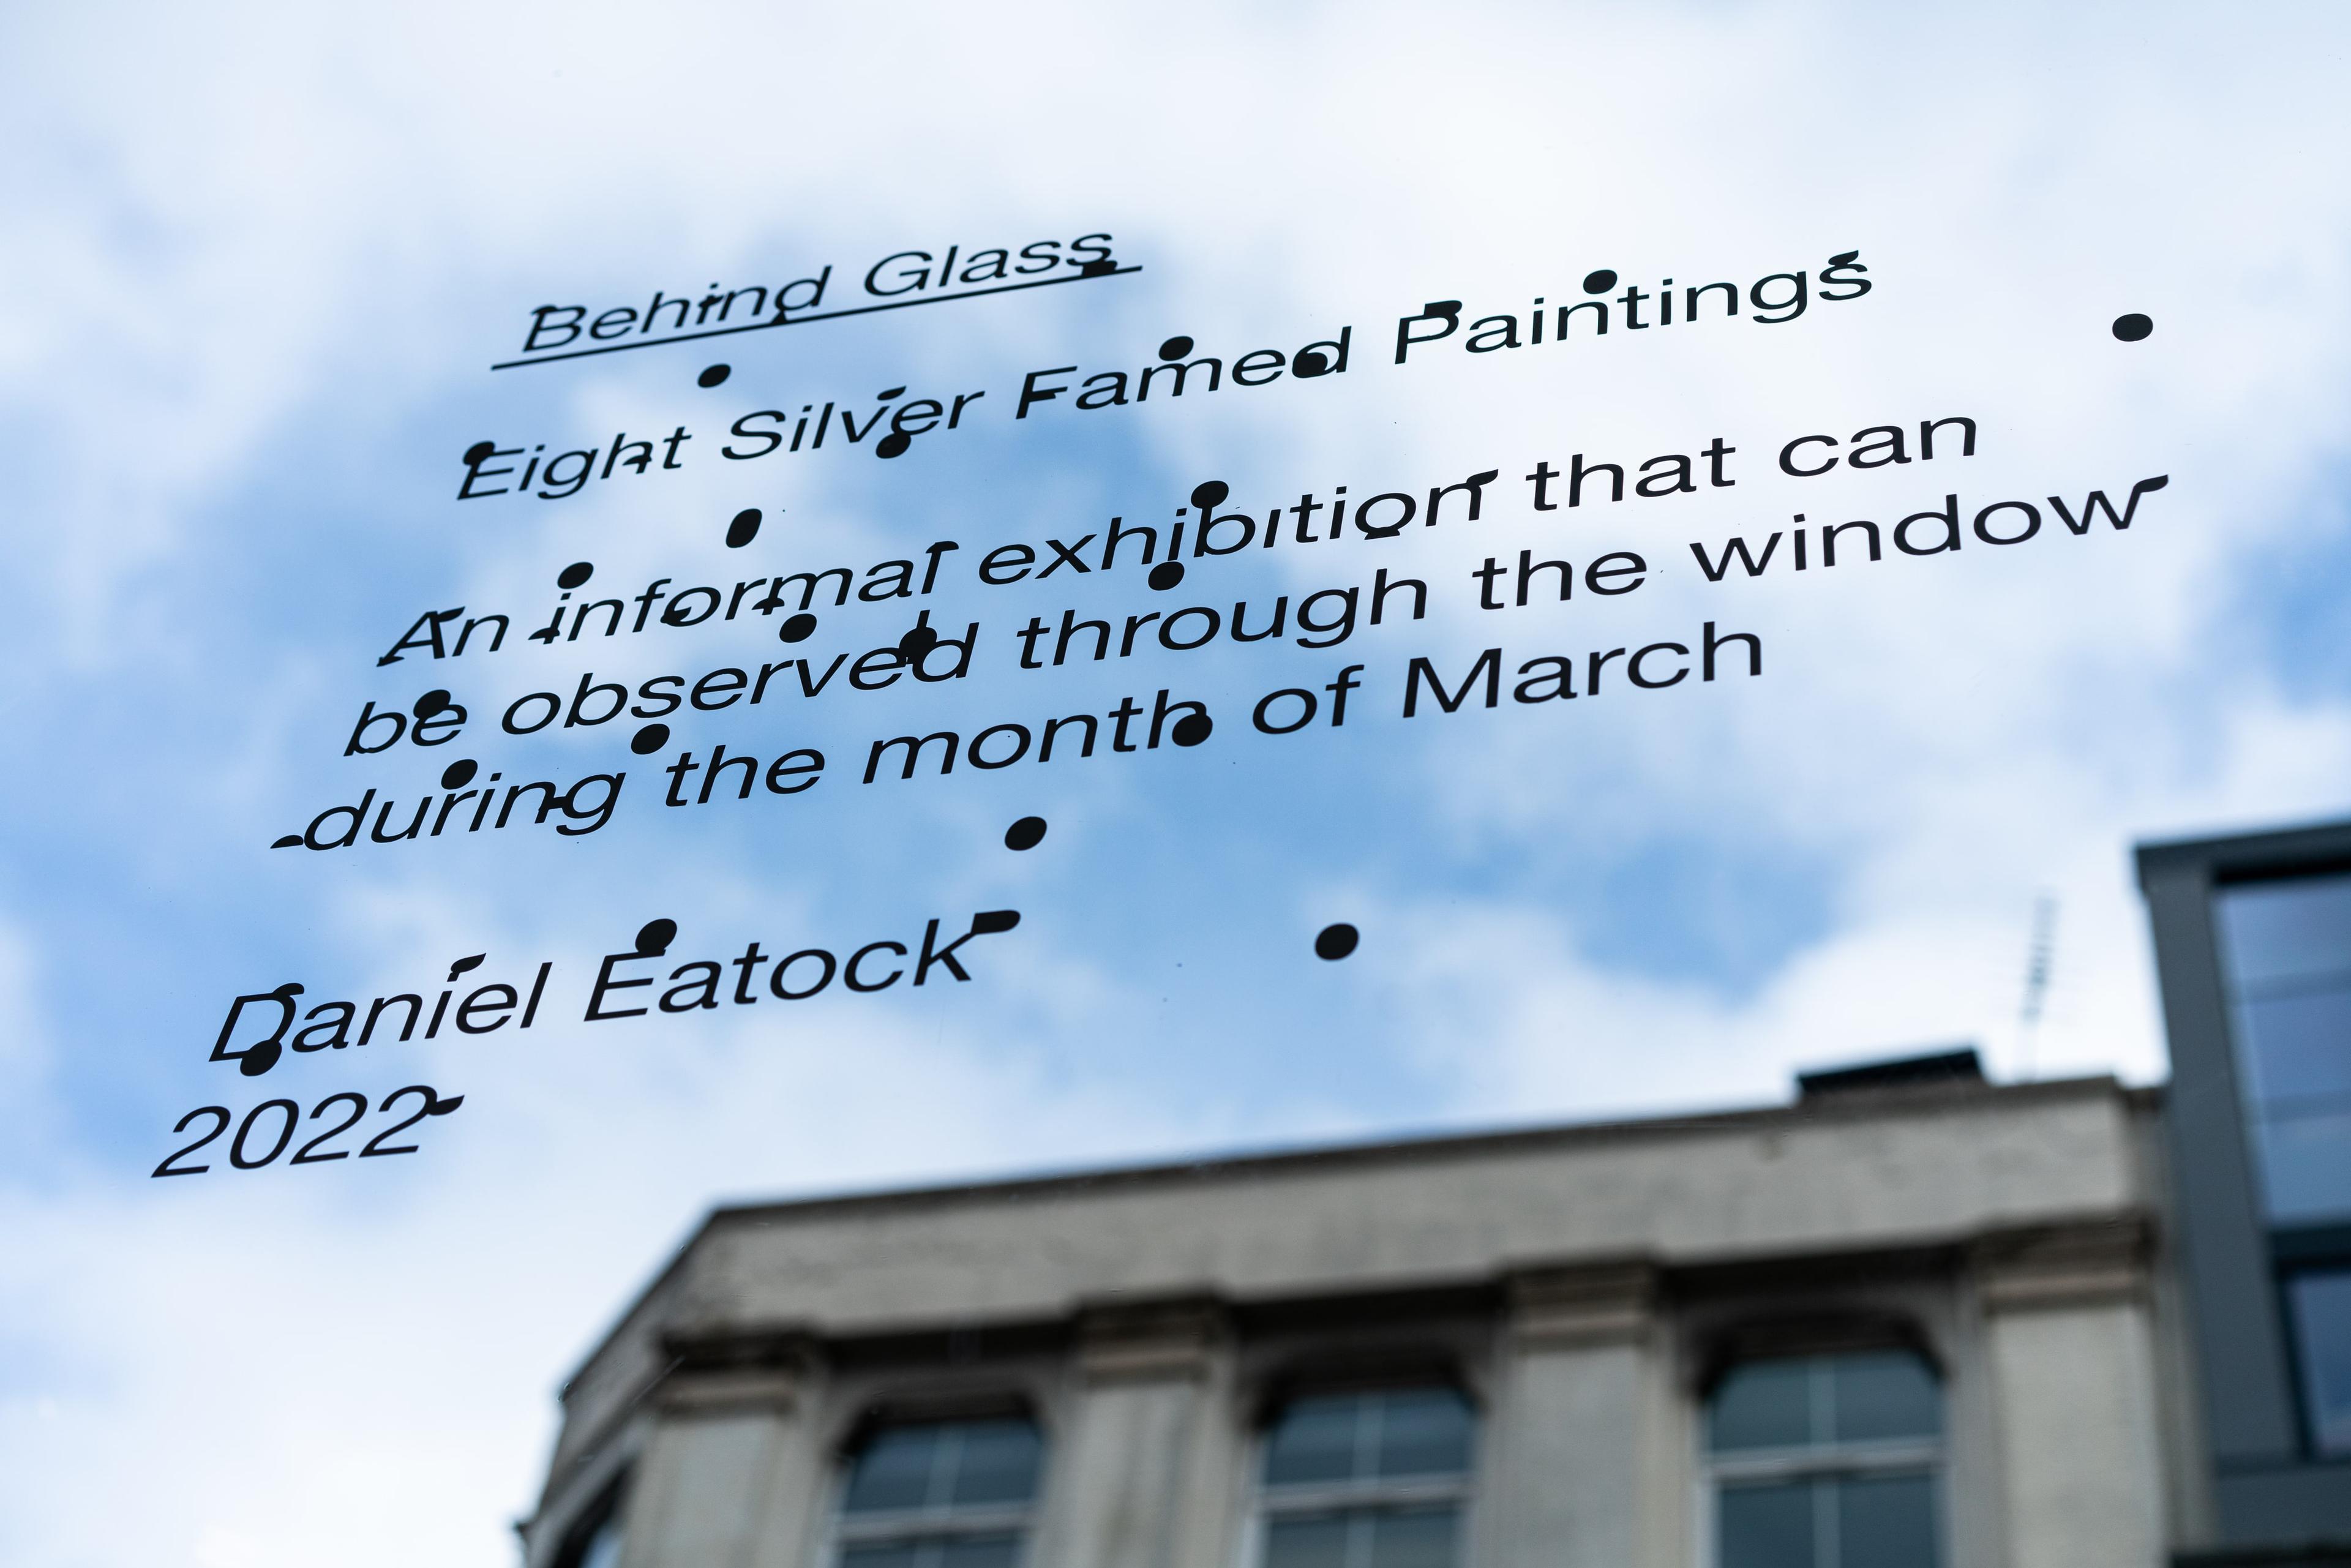 Behind Glass
Eight Silver Famed Paintings
An informal exhibition that can
be observed through the window
during the month of March
Daniel Eatock
2022